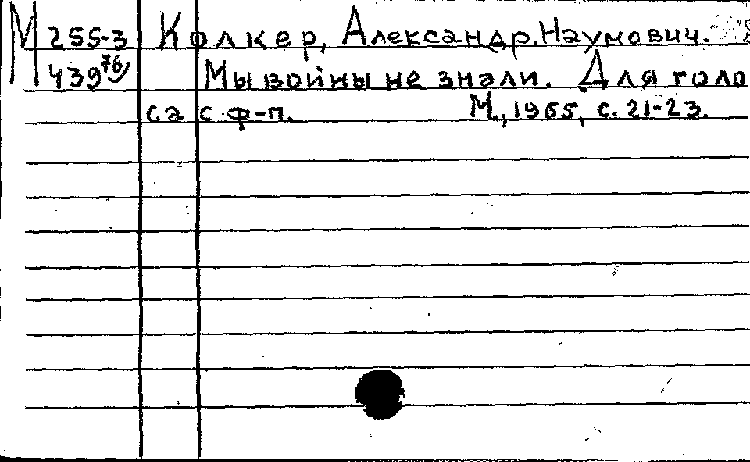 М 255-3 Колкер, Александр Наумович.
439 76/ Мы войны не знали. Для голо
са с ф-п. М., 1965, с. 21-23.